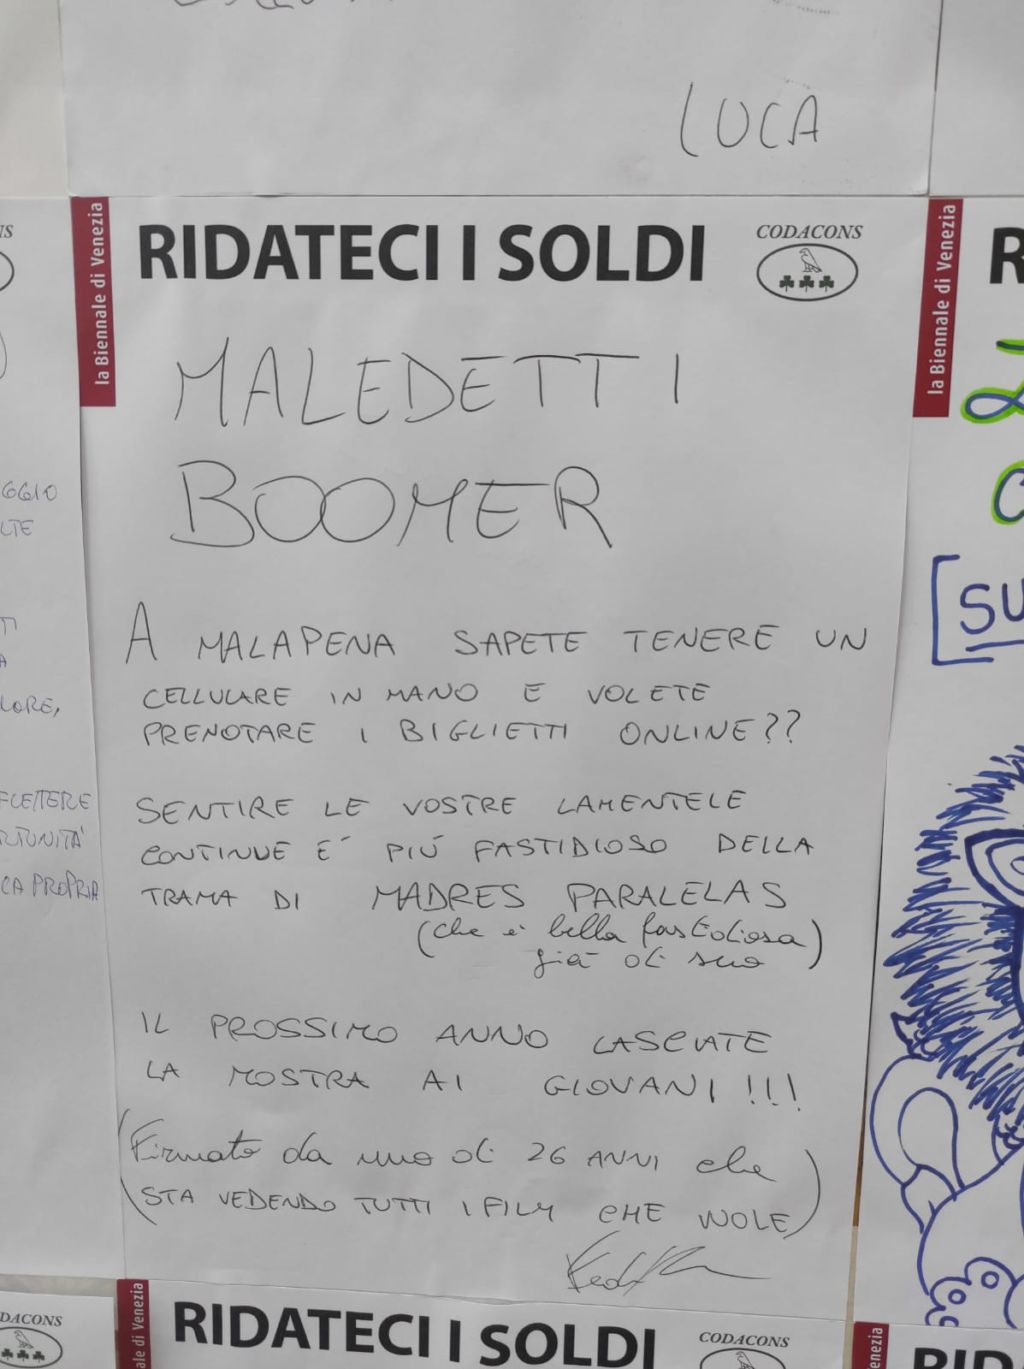 LUCA
la Biennale di Venezia
RIDATECI I SOLDI
CODACONS
MALEDETTI
BOOMER
A MALAPENA SAPETE TENERE UN
CELLULARE IN MANO E VOLETE
PRENOTARE I BIGLIETTI ONLINE??
SENTIRE LE VOSTRE LAMENTELE
CONTINUE E' PIÚ FASTIDIOSO DELLA
TRAMA DI MADRES PARALELAS
(che è bella fastidiosa)
già di suo
IL PROSSIMO ANNO LASCIATE
LA MOSTRA AI GIOVANI!!!
(Firmato da uno di 26 ANNI che
STA VEDENDO TUTTI I FILM CHE VUOLE)
la Biennale di Venezia
SU
OGGIO
LTE
TI
A
LORE,
FLETTERE
RTUNITÀ
CA PROPRIA
DACONS
di Venezia
RIDATECI I SOLDI
CODACONS
enezia
RID